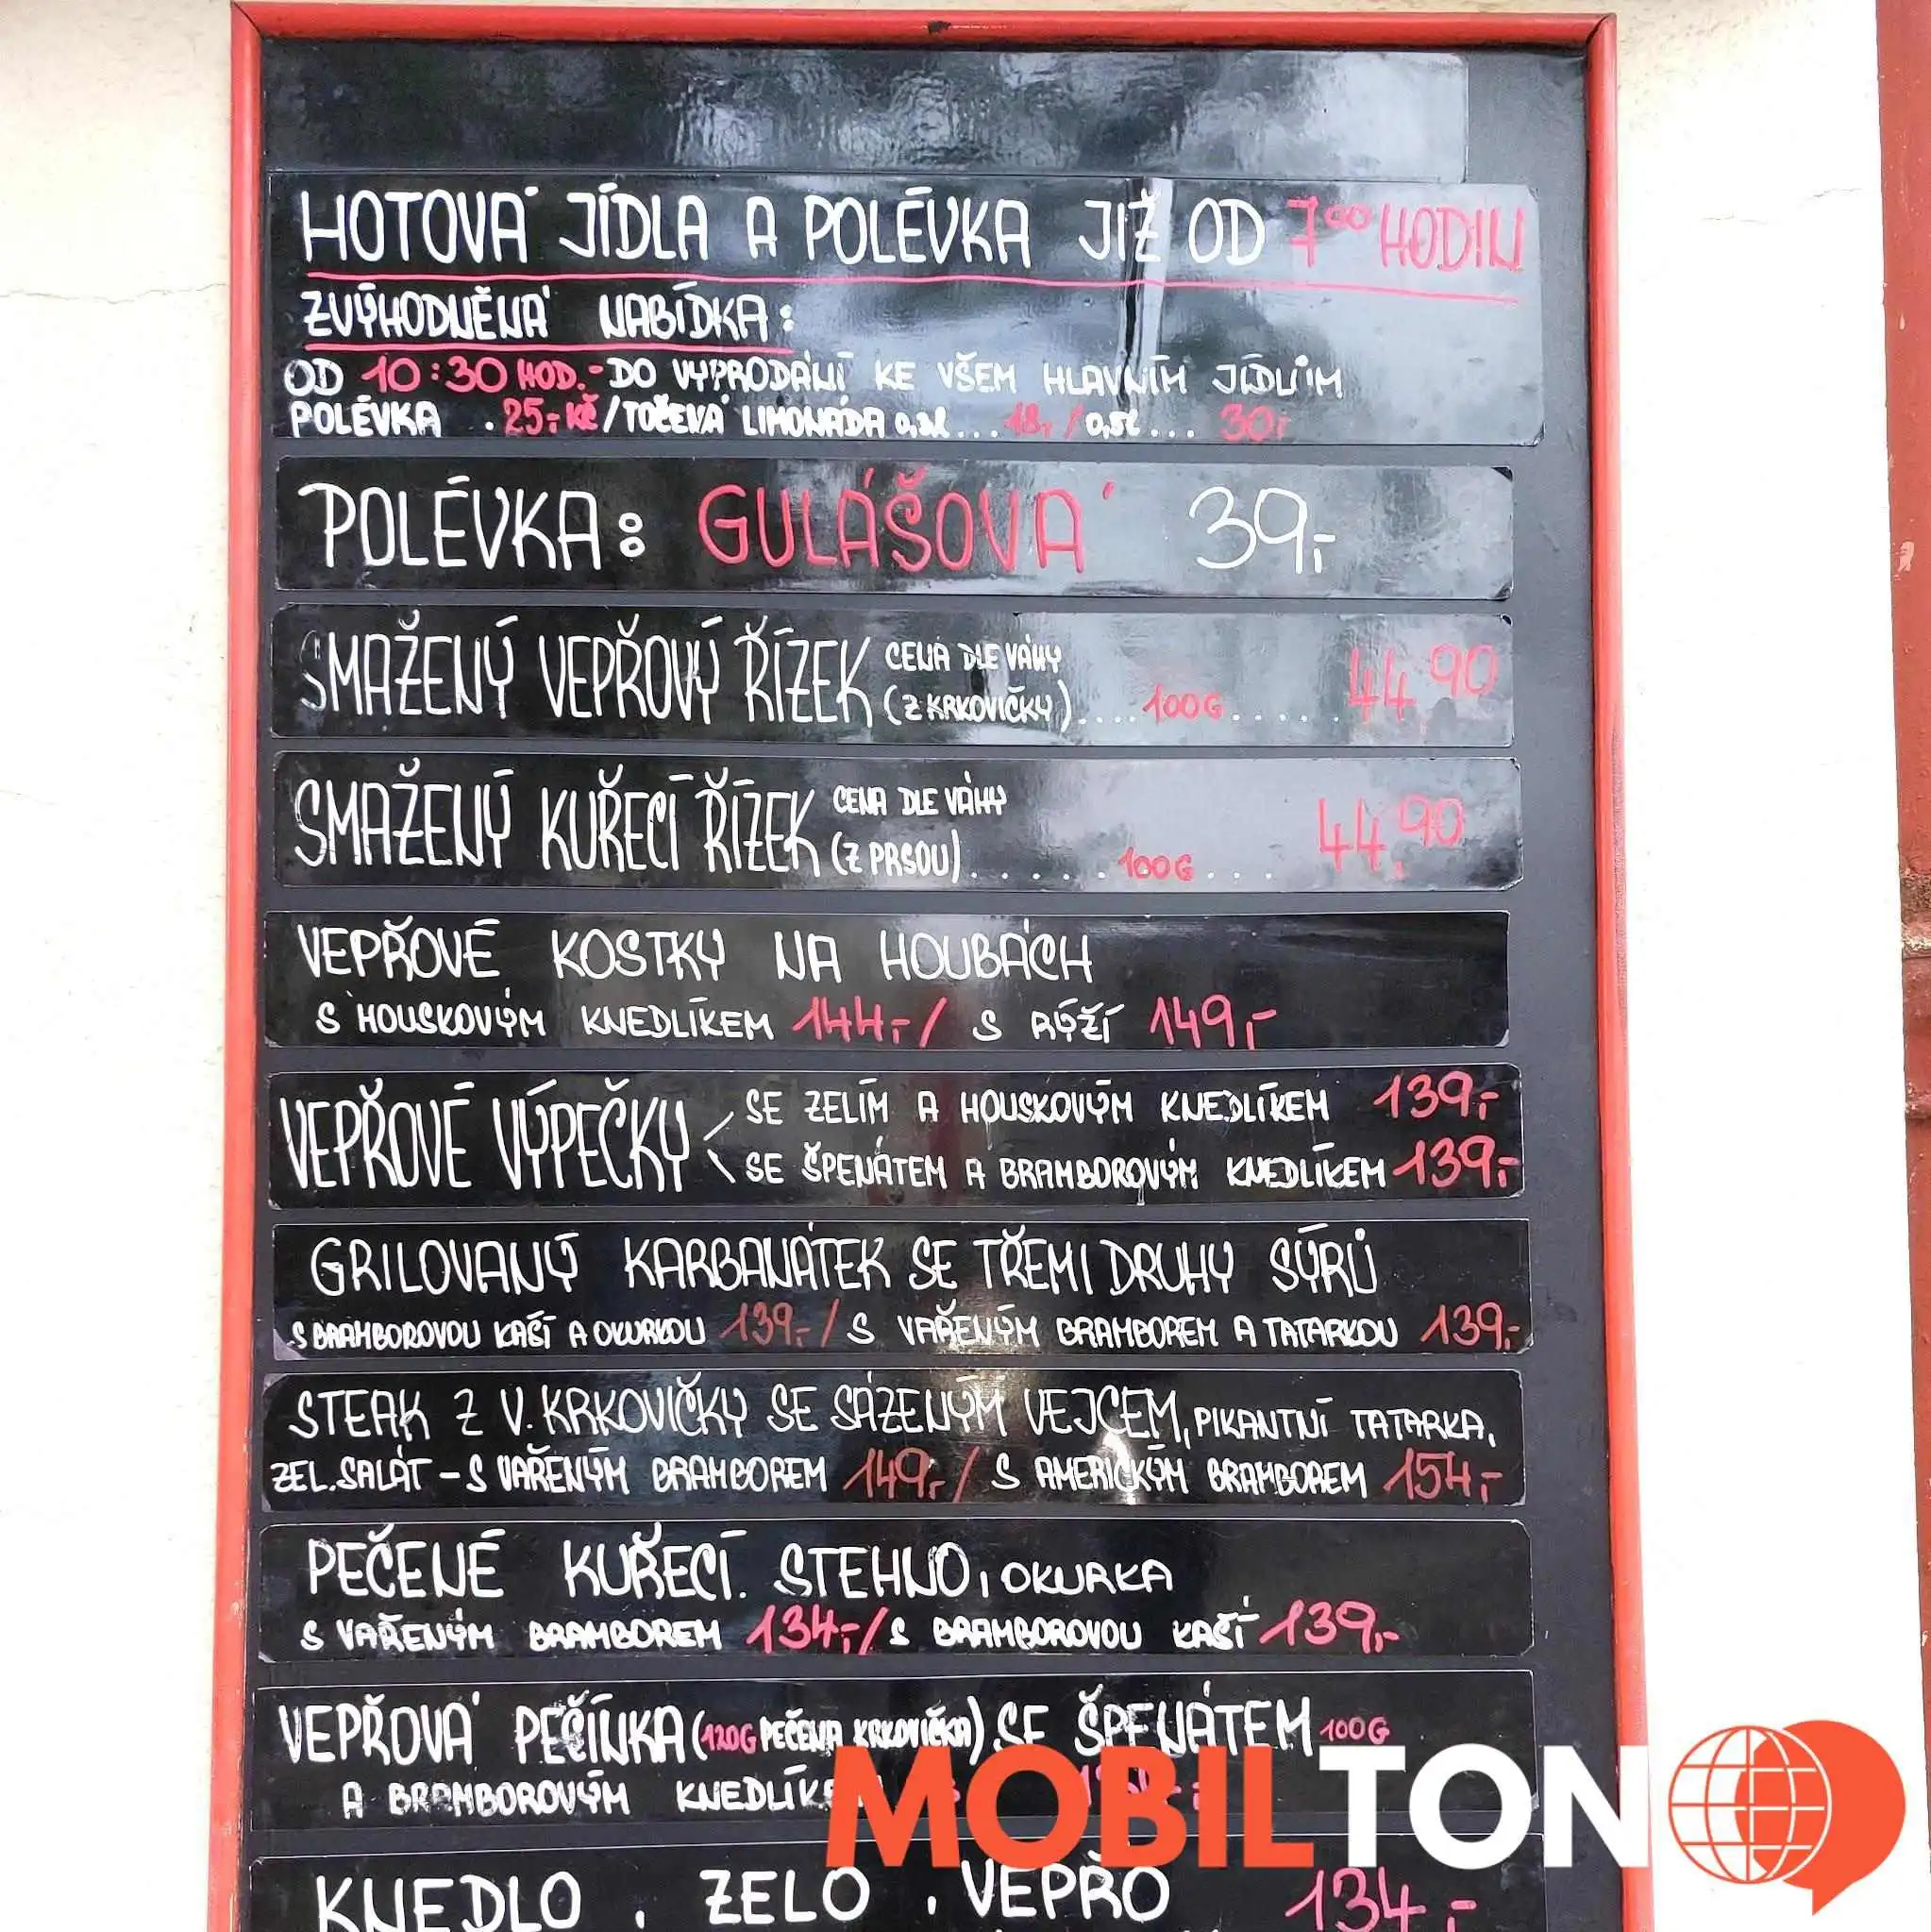 HOTOVÁ JÍDLA A POLÉVKA JIŽ OD 7⁰⁰ HODIN
ZVÝHODNĚNÁ NABÍDKA:
OD 10:30 HOD.- DO VYPRODÁNÍ KE VŠEM HLAVNÍM JÍDLŮM
POLÉVKA . 25,- KČ / TOČENÁ LIMONÁDA 0,3L... 18,- / 0,5L... 30,-
POLÉVKA: GULÁŠOVÁ 39,-
SMAŽENÝ VEPŘOVÝ ŘÍZEK CENA DLE VÁHY
(Z KRKOVIČKY)....100G......44,90
SMAŽENÝ KUŘECÍ ŘÍZEK CENA DLE VÁHY
(Z PRSOU)......100G...44,90
VEPŘOVÉ KOSTKY NA HOUBÁCH
S HOUSKOVÝM KNEDLÍKEM 144,- / S RÝŽÍ 149,-
VEPŘOVÉ VÝPEČKY SE ZELÍM A HOUSKOVÝM KNEDLÍKEM 139,-
SE ŠPENÁTEM A BRAMBOROVÝM KNEDLÍKEM 139,-
GRILOVANÝ KARBANÁTEK SE TŘEMI DRUHY SÝRŮ
S BRAMBOROVOU KAŠÍ A OKURKOU 139,- / S VAŘENÝM BRAMBOREM A TATARKOU 139,-
STEAK Z V. KRKOVIČKY SE SÁZENÝM VEJCEM, PIKANTNÍ TATARKA,
ZEL. SALÁT - S VAŘENÝM BRAMBOREM 149,- / S AMERICKÝM BRAMBOREM 154,-
PEČENÉ KUŘECÍ STEHNO, OKURKA
S VAŘENÝM BRAMBOREM 134,- / S BRAMBOROVOU KAŠÍ 139,-
VEPŘOVÁ PEČÍNKA (120G PEČENÁ KRKOVIČKA) SE ŠPENÁTEM 100G
A BRAMBOROVÝM
KNEDLO, ZELO, VEPŘO 134,-
MOBIL TON